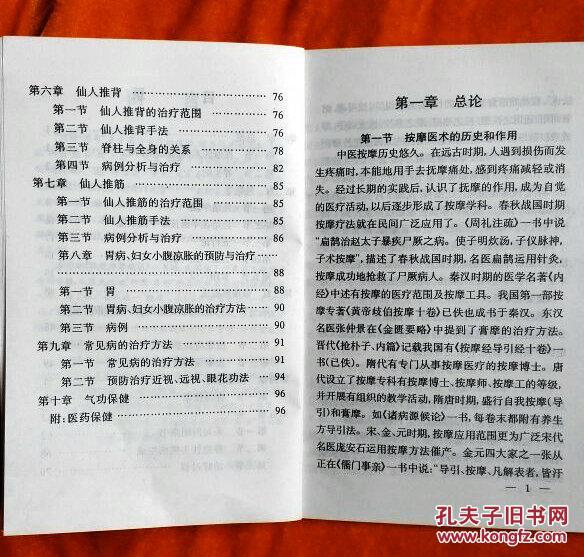 第六章 仙人推背 …………………… 76
第一节 仙人推背的治疗范围 …………… 76
第二节 仙人推背手法 …………………… 76
第三节 脊柱与全身的关系 ……………… 78
第四节 病例分析与治疗 ………………… 82
第七章 仙人推筋 …………………… 85
第一节 仙人推筋的治疗范围 …………… 85
第二节 仙人推筋手法 …………………… 85
第三节 病例分析与治疗 ………………… 86
第八章 胃病、妇女小腹凉胀的预防与治疗 ……
…………………… 88
第一节 胃 …………………… 88
第二节 胃病、妇女小腹凉胀的治疗方法 …… 90
第三节 病例 …………………… 90
第九章 常见病的治疗方法 …………… 91
第一节 常见病的治疗方法 …………… 91
第二节 预防治疗近视、远视、眼花功法 …… 94
第十章 气功保健 …………………… 96
附:医药保健 …………………… 96
第一章 总论
第一节 按摩医术的历史和作用
中医按摩历史悠久。在远古时期,人遇到损伤而发
生疼痛时,本能地用手去抚摩痛处,感到疼痛减轻或消
失。经过长期的实践后,认识了抚摩的作用,成为自觉
的医疗活动,以后逐步形成了按摩学科。春秋战国时期
按摩疗法就在民间广泛应用了。《周礼注疏》一书中说
"扁鹊治赵太子暴疾尸厥之病。使子明炊汤,子仪脉神,
子术按摩",描述了春秋战国时期,名医扁鹊运用针灸、
按摩成功地抢救了尸厥病人。秦汉时期的医学名著《内
经》中述有按摩的医疗范围及按摩工具。我国第一部按
摩专著《黄帝歧伯按摩十卷》已佚也成书于秦汉。东汉
名医张仲景在《金匮要略》中提到了膏摩的治疗方法。
晋代《抢朴子、内篇》记载我国有《按摩经导引经十卷》一
书(已佚)。隋代有专门从事按摩医疗的按摩博士。唐
代设立了按摩专科有按摩博士、按摩师、按摩工的等级,
并开展有组织的教学活动,隋唐时期,盛行自我按摩(导
引)和膏摩。如《诸病源候论》一书,每卷末都附有养生
方导引法。宋、金、元时期,按摩应用范围更为广泛宋代
名医庞安石运用按摩方法催产。金元四大家之一张从
正在《儒门事亲》一书中说:"导引、按摩、凡解表者,皆汗
— 1 —
孔夫子旧书网
www.kongfz.com